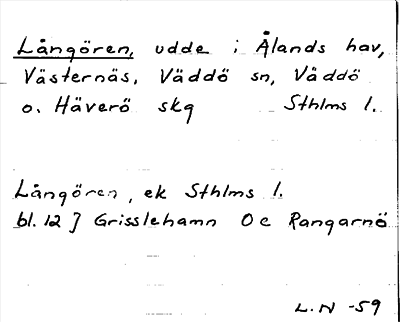 Långören, udde i Ålands hav,
Västernäs, Väddö sn, Väddö
o. Häverö skg Sthlms l.
Långören, ek Sthlms l.
bl. 12 J Grisslehamn Oc Rangarnö
L.N -59